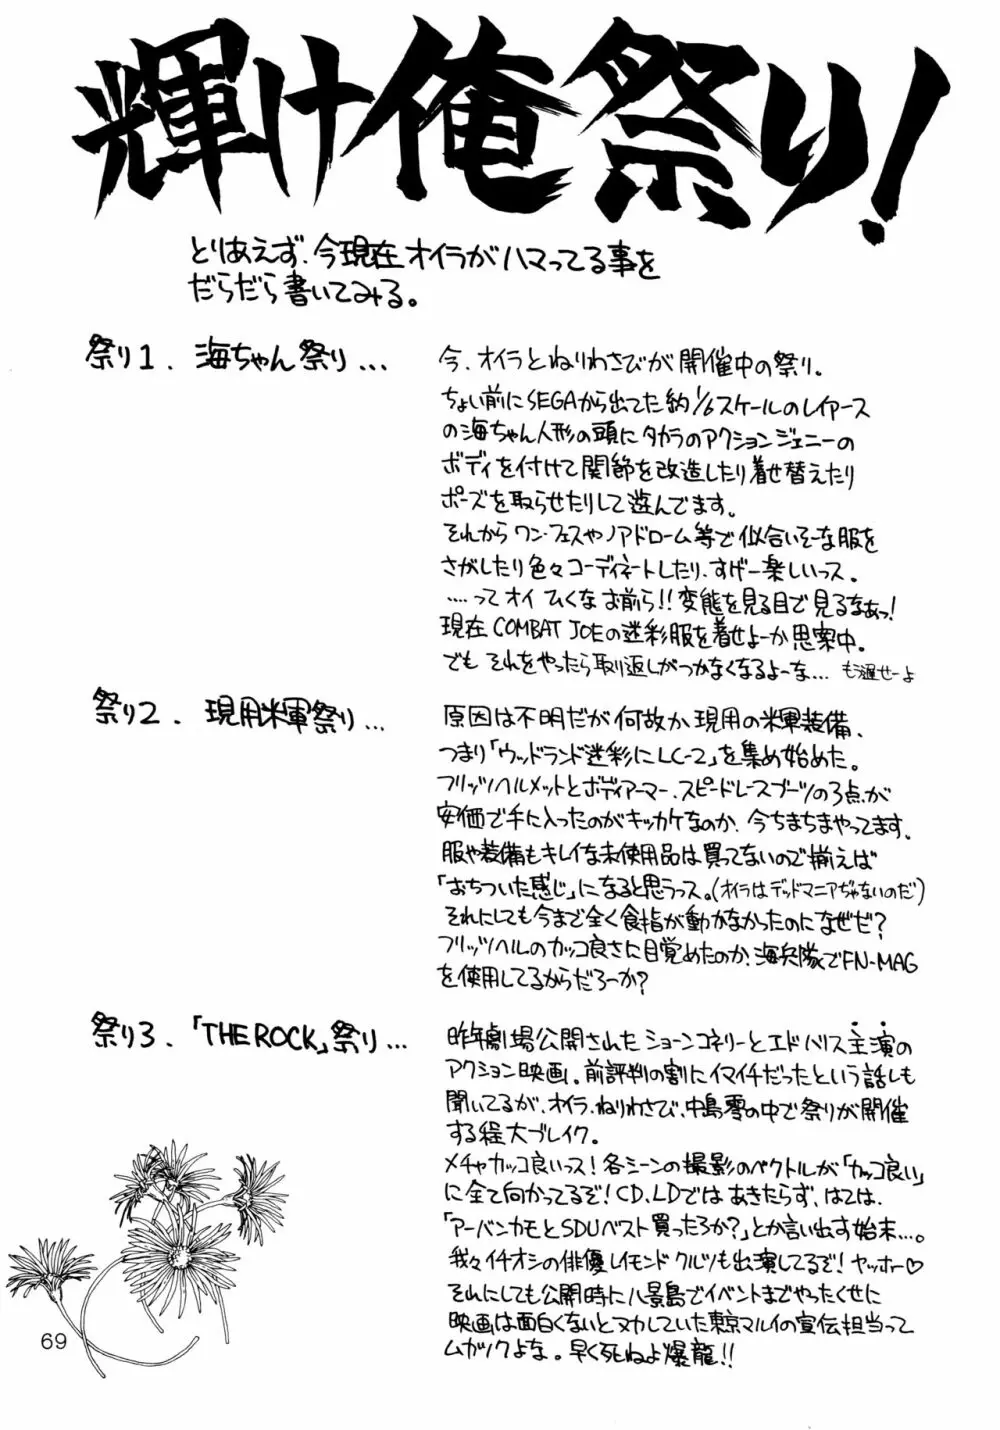 輝け俺祭り！
とりあえず、今現在オイラがハマってる事を
だらだら書いてみる。
祭り1. 海ちゃん祭り...
今、オイラとねりわさびが開催中の祭り。
ちょい前にSEGAから出てた約1/6スケールのレイアース
の海ちゃん人形の頭にタカラのアクションジェニーの
ボディを付けて関節を改造したり着せ替えたり
ポーズを取らせたりして遊んでます。
それからワン・フェスやノアドローム等で似合いそーな服を
さがしたり色々コーディネートしたり、すげー楽しいっス。
.....ってオイ ひくなお前ら!!変態を見る目で見るなぁっ!
現在COMBAT JOEの迷彩服を着せよーか思案中。
でも それをやったら取り返しがつかなくなるよーな... もう遅せーよ
祭り2. 現用米軍祭り...
原因は不明だが何故か現用の米軍装備、
つまり「ウッドランド迷彩にLC-2」を集め始めた。
フリッツヘルメットとボディアーマー、スピードレースブーツの3点が
安価で手に入ったのがキッカケなのか、今ちまちまやってます。
服や装備もキレイな未使用品は買ってないので揃えば
「おちついた感じ」になると思うっス。(オイラはデッドマニアぢゃないのだ)
それにしても今まで全く食指が動かなかったのになぜだ?
フリッツヘルのカッコ良さに目覚めたのか、海兵隊でFN-MAG
を使用してるからだろーか?
祭り3. 「THE ROCK」祭り...
昨年劇場公開されたショーンコネリーとエドハリス主演の
アクション映画。前評判の割にイマイチだったという話しも
聞いてるが、オイラ、ねりわさび、中島零の中で祭りが開催
する程大ブレイク。
メチャカッコ良いっス!各シーンの撮影のベクトルが「カッコ良い」
に全て向かってるぞ!CD、LDではあきたらず、はては、
「アーバンカモとSDUベスト買ったろか?」とか言い出す始末...。
我々イチオシの俳優レイモンドクルツも出演してるぞ!ヤッホー♡
それにしても公開時に八景島でイベントまでやったくせに
映画は面白くないとヌカしていた東京マルイの宣伝担当って
ムカツクよな。早く死ねよ爆龍!!
69